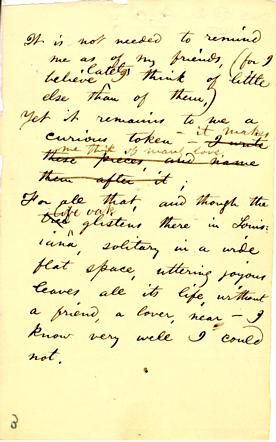 It is not needed to remind
me as of my friends, (for I
believe lately I think of little
else than of them,)
Yet it remains to me a
curious token — it makes
I wrote
me think of manly love;
these pieces and name
them after it;
For all that, and though the
live oak
tree glistens there in Louis-
iana, solitary in a wide
flat space, uttering joyous
leaves all its life, without
a friend, a lover, near — I
know very well I could
not.
3